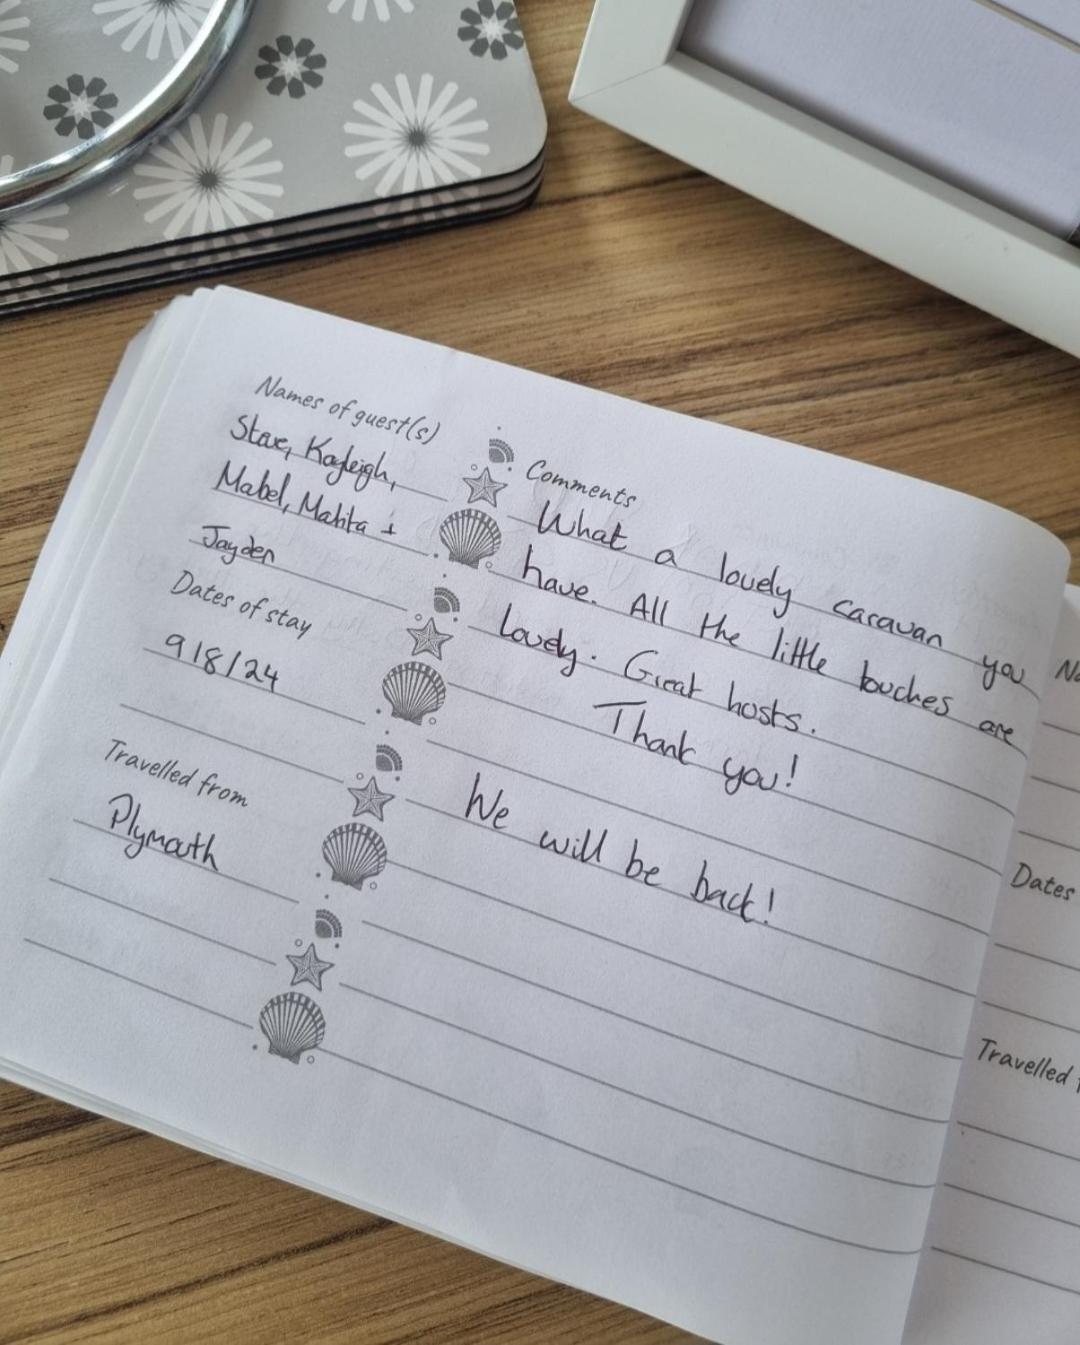 Names of guest(s)
Steve, Kayleigh,
Mabel, Mahita +
Jayden
Dates of stay
9/8/24
Travelled from
Plymouth
Comments
What a lovely caravan you
have. All the little touches are
lovely. Great hosts.
Thank you!
We will be back!
Dates
Travelled